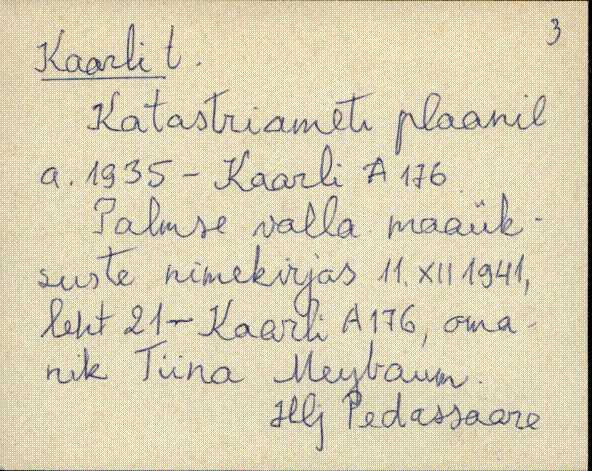 3
Kaarli t.
Katastriameti plaanil
a. 1935 - Kaarli A 176
Palmse valla maaük-
suste nimekirjas 11. XII 1941,
leht 21 - Kaarli A 176, oma-
nik Tiina Meybaum.
Hlj Pedassaare